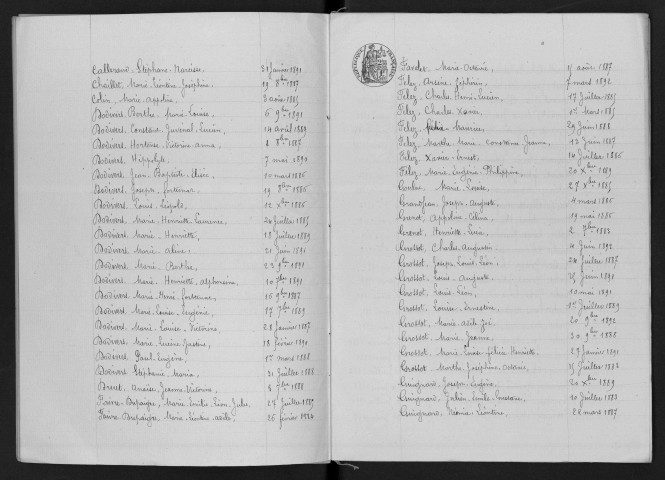 Callerand, Stéphane Narcisse 31 Janvier 1891
Chaillet, Marie Léontine Joséphine 19 8bre 1887
Colin, Marie Appoline, 3 août 1885
Bodivers, Berthe Marie Louise 6 9bre 1891
Bodivers, Constant Juvénal Lucien, 14 avril 1889
Bodivers, Hortense Victorine Anna 1 8bre 1887
Bodivers, Hippolyte 7 mai 1890
Bodivers, Jean Baptiste Elisée, 20 mars 1886
Bodivers, Joseph 19 1886
Bodivers, Louis Léopold 12 Xbre 1886
Bodivers, Marie Henriette Laurence 24 Juillet 1885
Bodivers, Marie Henriette, 18 Juillet 1889
Bodivers, Marie Aline, 21 Juin 1891
Bodivers, Marie Berthe, 23 9bre 1891
Bodivers, Marie Henriette Alphonsine, 10 7bre 1891
Bodivers, Marie 16 9bre 1887
Bodivers, Marie Louise Eugénie, 17 7bre 1889
Bodivers, Marie Louise Victorine, 28 Janvier 1887
Bodivers, Marie Lucine Justine, 18 février 1891
Bodivers, Paul Eugène, 1er mars 1888
Bodivers, Stéphanie Maria, 31 Juillet 1888
Breset, Anaïse Jeanne Victorine, 5 7bre 1888
Faivre-Dupaigre, Marie Emilie Léon Jules 27 Juillet 1887
Faivre-Dupaigre, Marie Léontine Adèle, 26 février 1884
REPUBLIQUE FRANÇAISE
Marie 15 août 1887
Félez, Arsène Zéphirin, 7 mars 1892
Félez, Charles Henri Lucien, 17 Juillet 1885
Félez, Charles Xavier 1er Mars 1885
Félez, Félix Maurice, 29 Juin 1888
Félez, Marthe Marie Constance Jeanne, 12 Juin 1887
Félez, Xavier Ernest, 14 Juillet 1886
Félez, Marie Eugénie Philippine, 20 Xbre 1889
Marie Louise, 27 Xbre 1885
Grandjean, Joseph Auguste, 4 mars 1886
Grenot, Appoline Célina, 19 mai 1886
Grenot, Henriette 2 7bre 1883
Grossot, Charles Augustin, 4 Juin 1892
Grossot, Joseph Louis Léon, 24 Juillet 1887
Grossot, Louis Auguste, 25 Juin 1891
Grossot, Louis Léon, 10 mai 1891
Grossot, Louise Ernestine, 1er Juillet 1889
Grossot, Marie Adèle Zoé, 20 9bre 1892
Grossot, Marie Jeanne, 30 9bre 1888
Grossot, Marie Louise Félicie Henriette, 27 Janvier 1891
Grossot, Marthe Joséphine 15 Juillet 1883
Guignard, Joseph Eugène, 20 Xbre 1889
Guignard, Julien Emile 10 Juillet 1883
Guignard, Léonie Léontine, 22 mars 1887